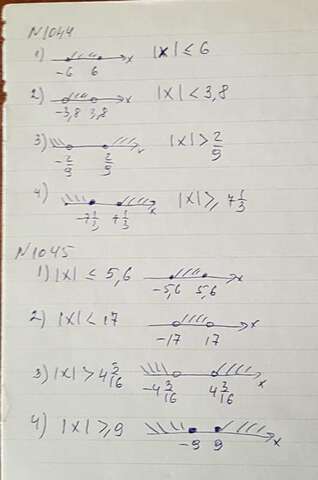 N1044
1) -6 6 x |x| ≤ 6
2) -3,8 3,8 x |x| < 3,8
3) -2/9 2/9 x |x| > 2/9
4) -7 1/3 7 1/3 x |x| ≥ 7 1/3
N1045
1) |x| ≤ 5,6 -5,6 5,6 x
2) |x| < 17 -17 17 x
3) |x| > 4 3/16 -4 3/16 4 3/16 x
4) |x| ≥ 9 -9 9 x